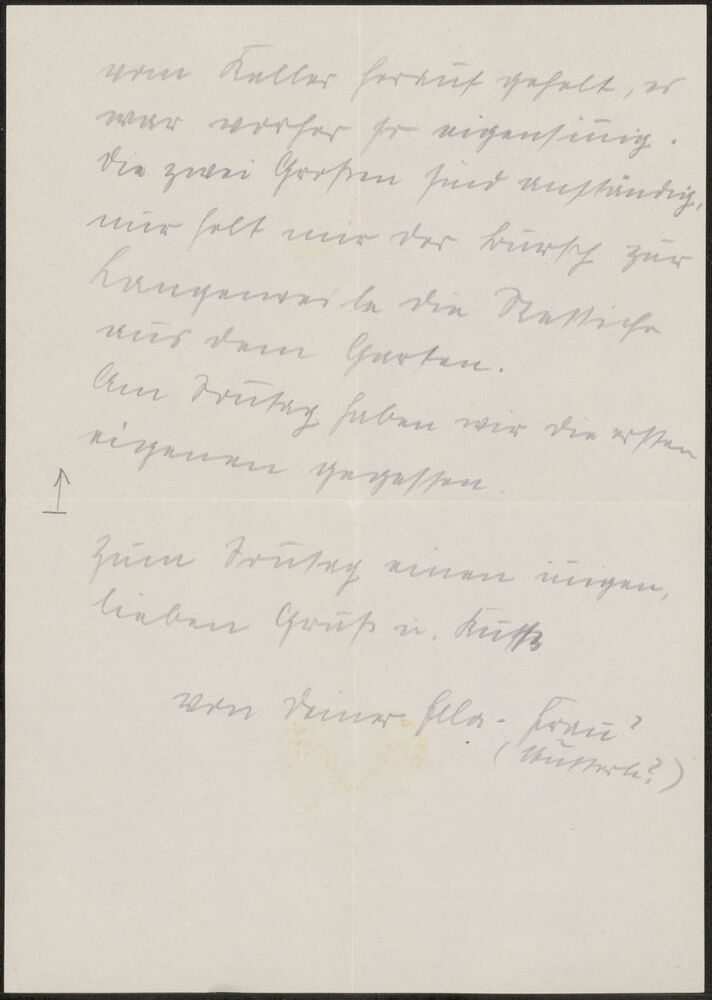 vom Keller herauf geholt, er
war vorher so eigensinnig.
Die zwei Großen sind anständig,
nur holt mir der Bursch zur
Langenweile die Rettiche
aus dem Garten.
Am Sonntag haben wir die ersten
eigenen gegessen.
Zum Sonntag einen innigen,
lieben Gruß u. Kuss
von Deiner Ella - Frau?
(Mutterle?)